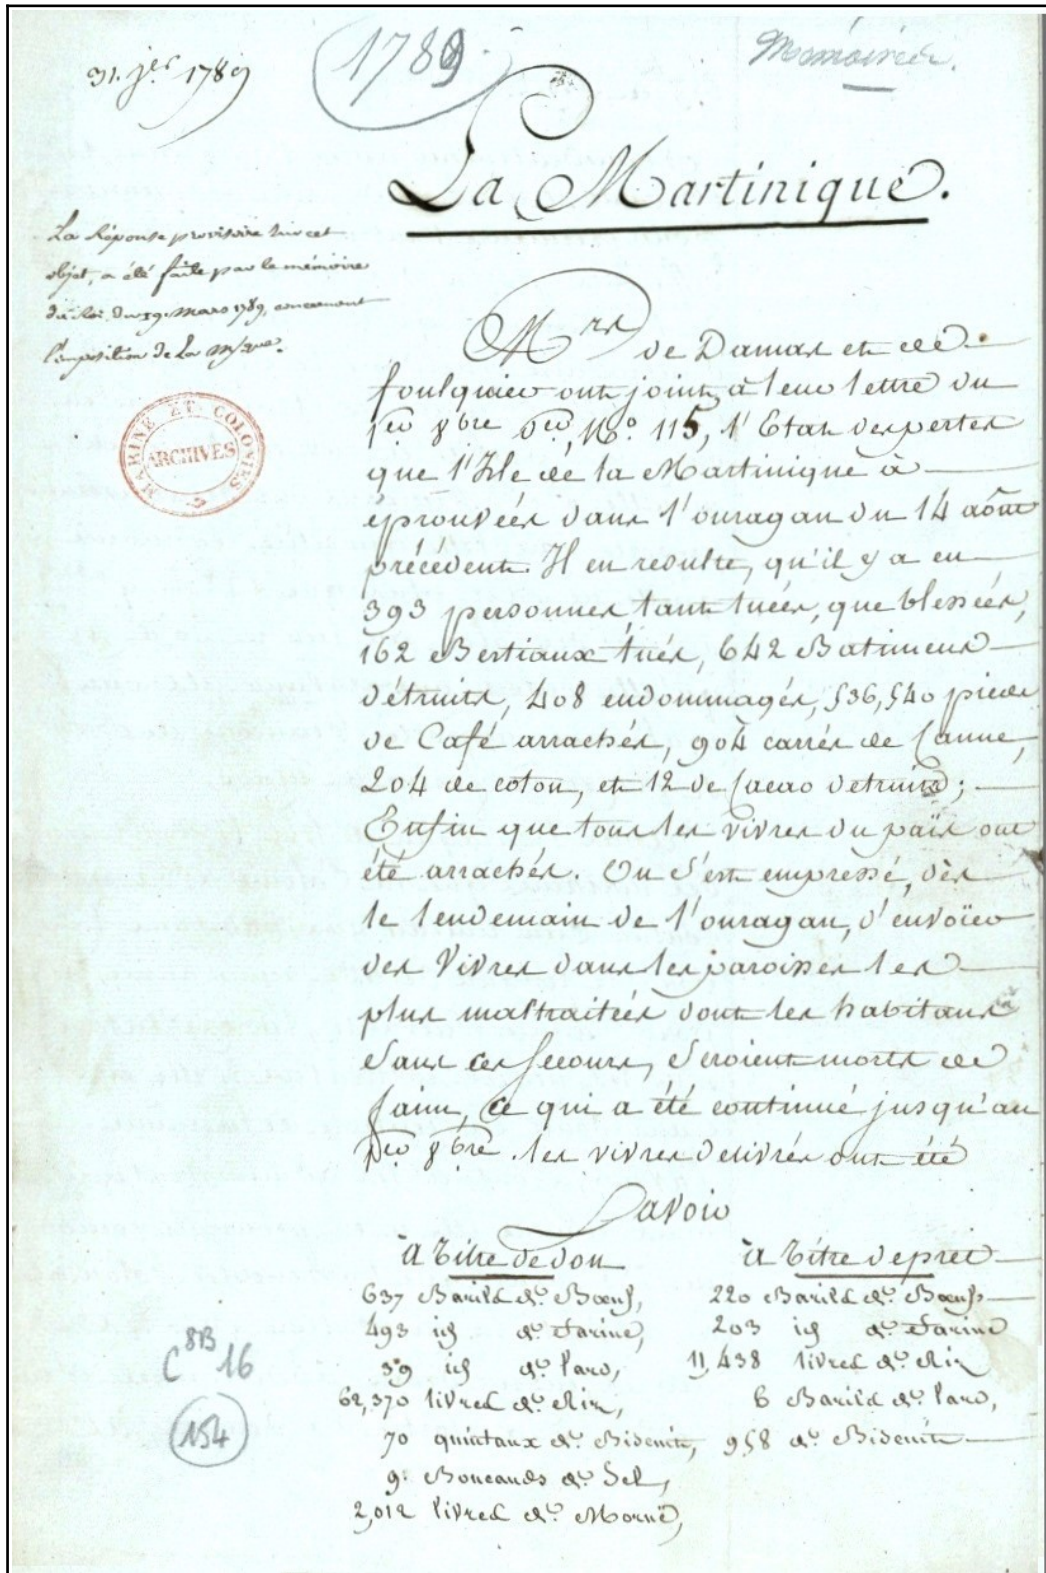 31. jer 1789
1789
Mémoires.
La Martinique.
La Réponse provisoire sur cet
objet, a été faite par le mémoire
du Roi du 19. Mars 1789, concernant
l'imposition de La Mque.
MARINE ET COLONIES
ARCHIVES
Mrs de Damas et de
foulquier ont joint, à leur lettre du
per 8bre der, No. 115, l'Etat des pertes
que l'Isle de la Martinique à
éprouvées dans l'ouragan du 14 août
précédent. Il en resulte, qu'il y a eu
393 personnes, tant tuées, que blessées,
162 Bestiaux tués, 642 Batimens
détruits, 408 endommagés, 536,540 pieds
de Café arrachés, 904 carrés de Canne,
204 de coton, et 12 de Cacao detruits;
Enfin que tous les vivres du païs ont
été arrachés. On s'est empressé, dès
le lendemain de l'ouragan, d'envoïer
des Vivres dans les paroisses les
plus maltraitées dont les habitans
sans ces secours, seroient morts de
faim, ce qui a été continué jusqu'au
per 8bre. les vivres delivrés ont été
Savoir
à titre de don
637 Barils de Boeuf,
493 id de Farine,
39 id de Lard,
62,370 livres de Riz,
70 quintaux de Biscuit,
9. Boucauds de Sel,
2,012 livres de Morue,
à titre de pret
220 Barils de Boeuf
203 id de Farine
11,438 livres de Riz
6 Barils de Lard,
958 de Biscuit
C 8B 16
154